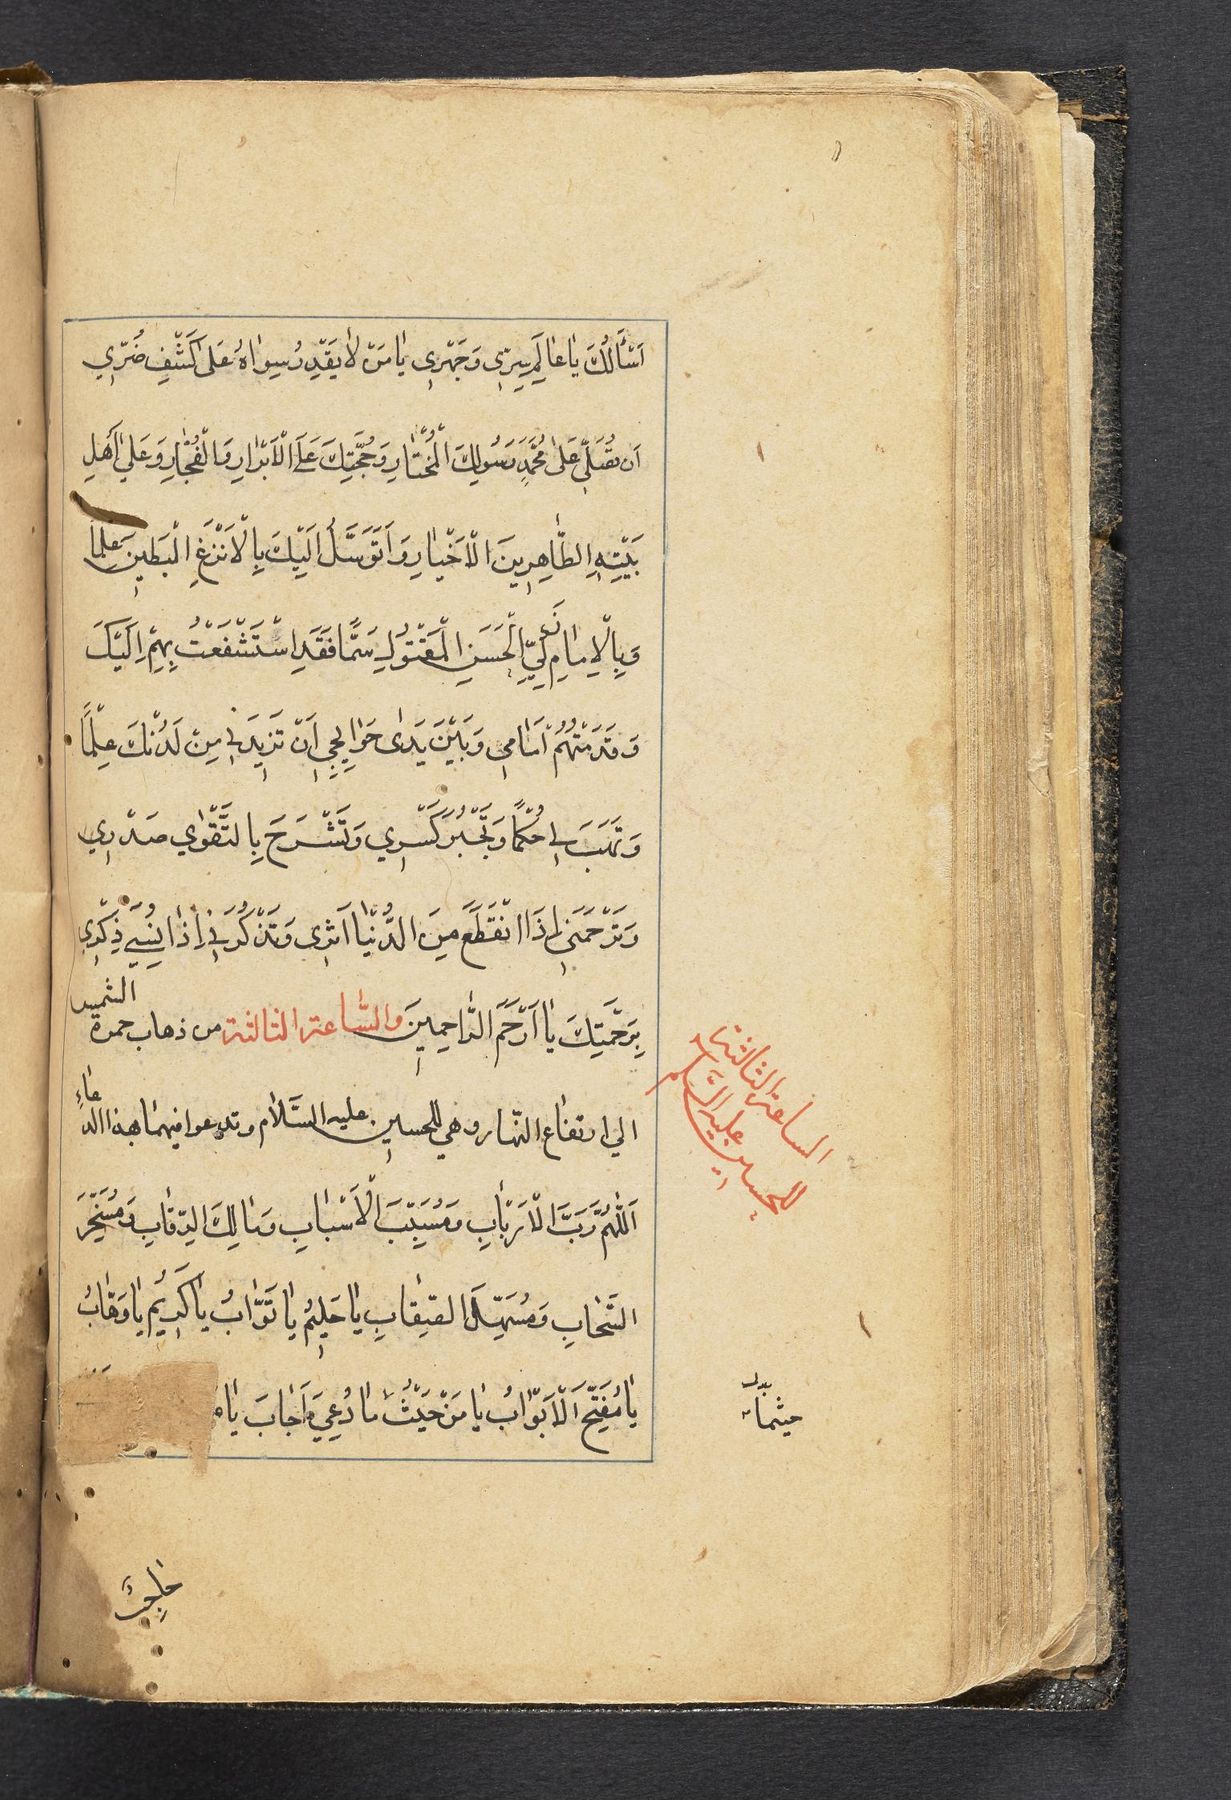 اَسْأَلُكَ يٰا عٰالِمَ سِرّي وَجَهْري يٰا مَنْ لاٰ يَقْدِرُ سِوٰاهُ عَلىٰ كَشْفِ ضُرّي
اَن تُصَلِّيَ عَلىٰ مُحَمَّدٍ رَسُولِكَ الْمُخْتٰارِ وَحُجَّتِكَ عَلَى الْاَبْرٰارِ وَالْفُجّٰارِ وَعَلىٰ اَهْلِ
بَيْتِهِ الطّٰاهِرينَ الْاَخْيٰارِ وَاَتَوَسَّلُ اِلَيْكَ بِالْاَنْزَعِ الْبَطينِ عِلْماً
وَبِالْاِمٰامِ الزَّكِيِّ الْحَسَنِ الْمَقْتُولِ سَمًّا فَقَدِ اسْتَشْفَعْتُ بِهِمْ اِلَيْكَ
وَقَدَّمْتُهُمْ اَمٰامي وَبَيْنَ يَدَىْ حَوٰائِجي اَنْ تَزيدَني مِنْ لَدُنْكَ عِلْمًا
وَتَهَبَ لي حُكْمًا وَتَجْبُرَ كَسْري وَتَشْرَحَ بِالتَّقْوٰي صَدْري
وَتَرْحَمَني اِذَا انْقَطَعَ مِنَ الدُّنْيٰا اَثَري وَتَذْكُرَني اِذٰا نُسِيَ ذِكْري
بِرَحْمَتِكَ يٰا اَرْحَمَ الرّٰاحِمينَ والسّٰاعة الثالثة من ذهاب حمرة الشمس
الي ارتفاع النّهار وهي للحسين عليه السَّلاٰم وتدعوا فيها بهذا الدعاء
اَللّٰهُمَّ رَبَّ الْاَرْبٰابِ وَمُسَبِّبَ الْاَسْبٰابِ وَمٰالِكَ الرِّقٰابِ وَمُسَخِّرَ
السَّحٰابِ وَمُسَهِّلَ الصِّعٰابِ يٰا حَليمُ يٰا تَوّٰابُ يٰا كَريمُ يٰا وَهّٰابُ
يٰا مُفَتِّحَ الْاَبْوٰابِ يٰا مَنْ حَيْثُ مٰا دُعِيَ اَجٰابَ يٰا
الساعة الثالثة
للحسين عليه السَّلم
حيثما